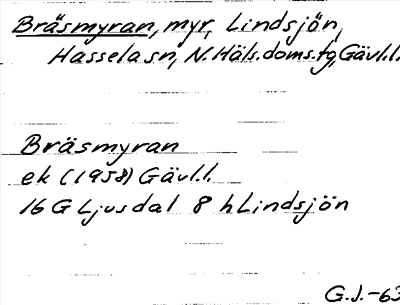 Bräsmyran, myr, Lindsjön,
Hassela sn, N. Häls. doms.fg, Gävl.l.
Bräsmyran
ek (1958) Gävl.l.
16 G Ljusdal 8 h Lindsjön
G.J.-63